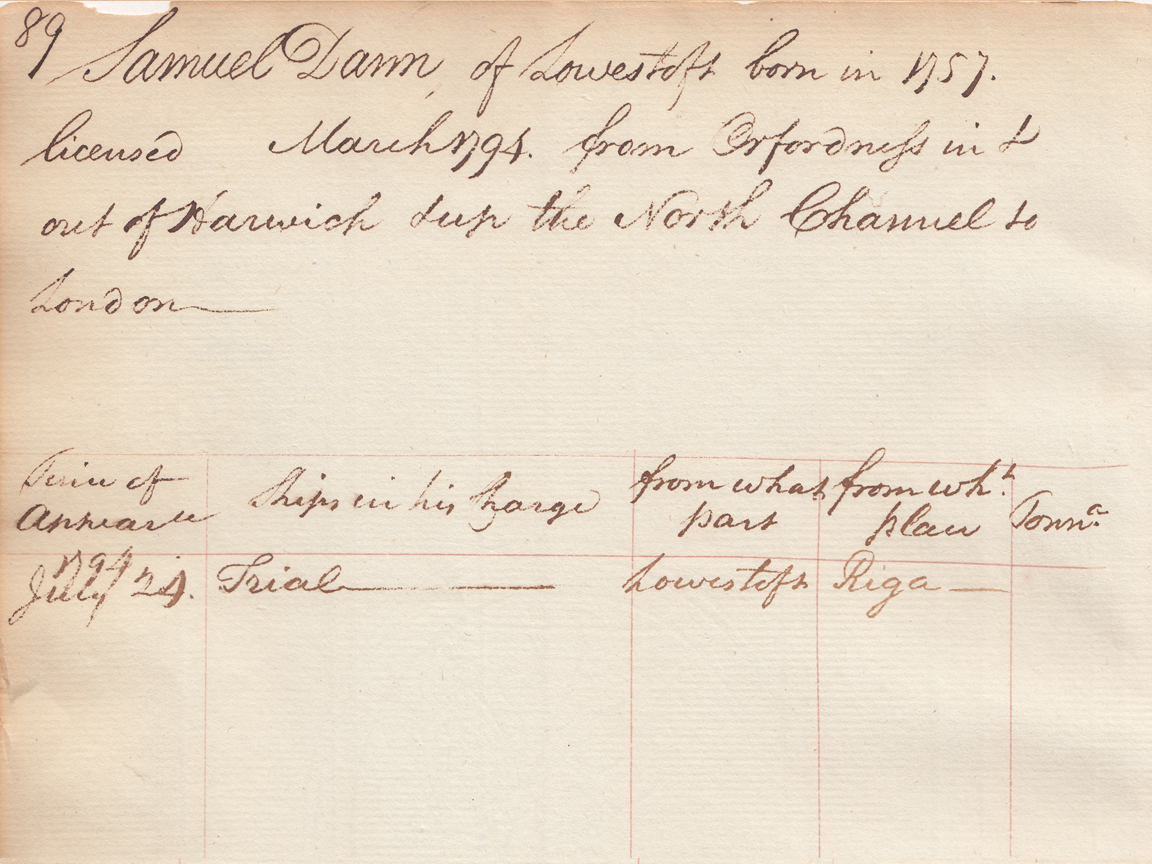 89 Samuel Dann, of Lowestoft born in 1757.
licensed March 1794. from Orfordness in &
out of Harwich & up the North Channel to
London
Time of Appearce
Ships in his Charge
from what part
from wht. place
Tonna.
1794
July 24. Trial Lowestoft Riga